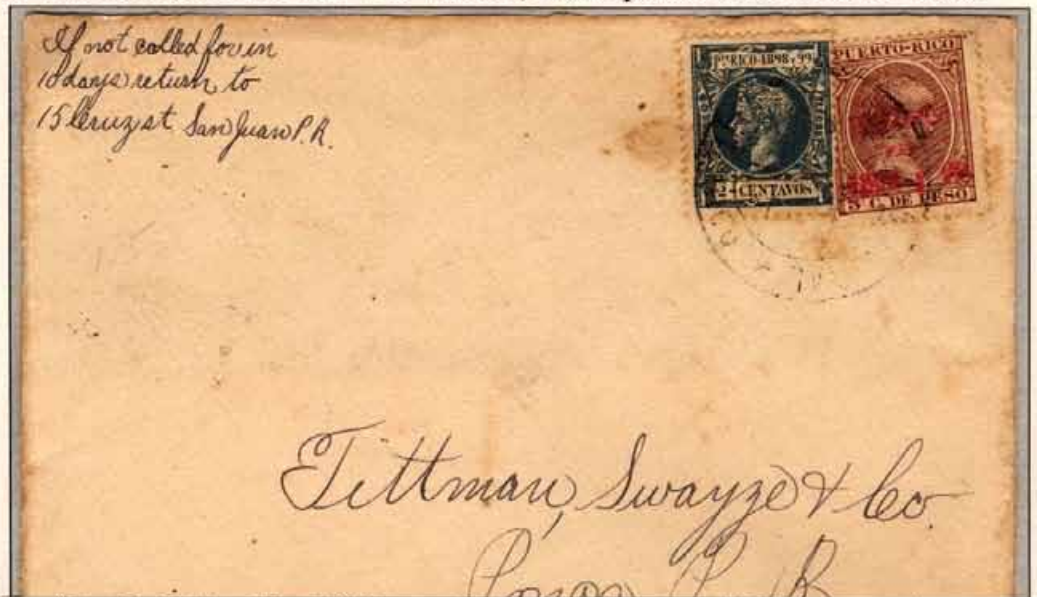 If not called for in
10 days return to
15 Cruz st San Juan P.R.
PTO RICO-1898 y 99
2 CENTAVOS
PUERTO-RICO
5 C. DE PESO
Tittman, Swayze & Co.
Ponce P. R.